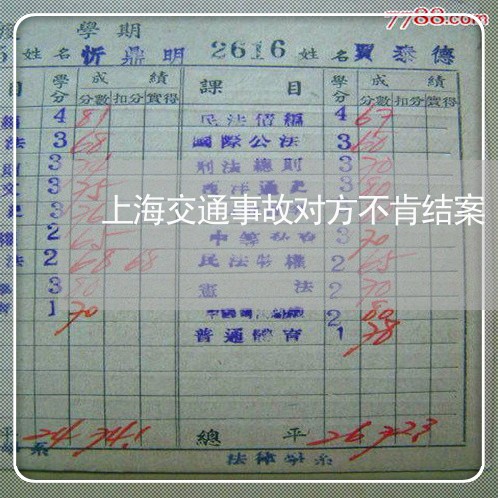 7788.com
學期
5 姓名 忻鼎明 2616 姓名 賈泰德
目 學分 成績 課目 學分 成績
分數 扣分 實得 分數 扣分 實得
4 81 民法債編 4 67
法 3 68 國際公法 3 60
3 刑法總則 3 70
3 75 西洋通史 3 80
上海交通事故对方不肯结案
2 65 3 70
法 2 68 68 民法物權 2 65
3 80 憲法 2 70
1 70 2 80
普通體育 1 78
平 24 74.1 總平 26 72.3
系 法律學系